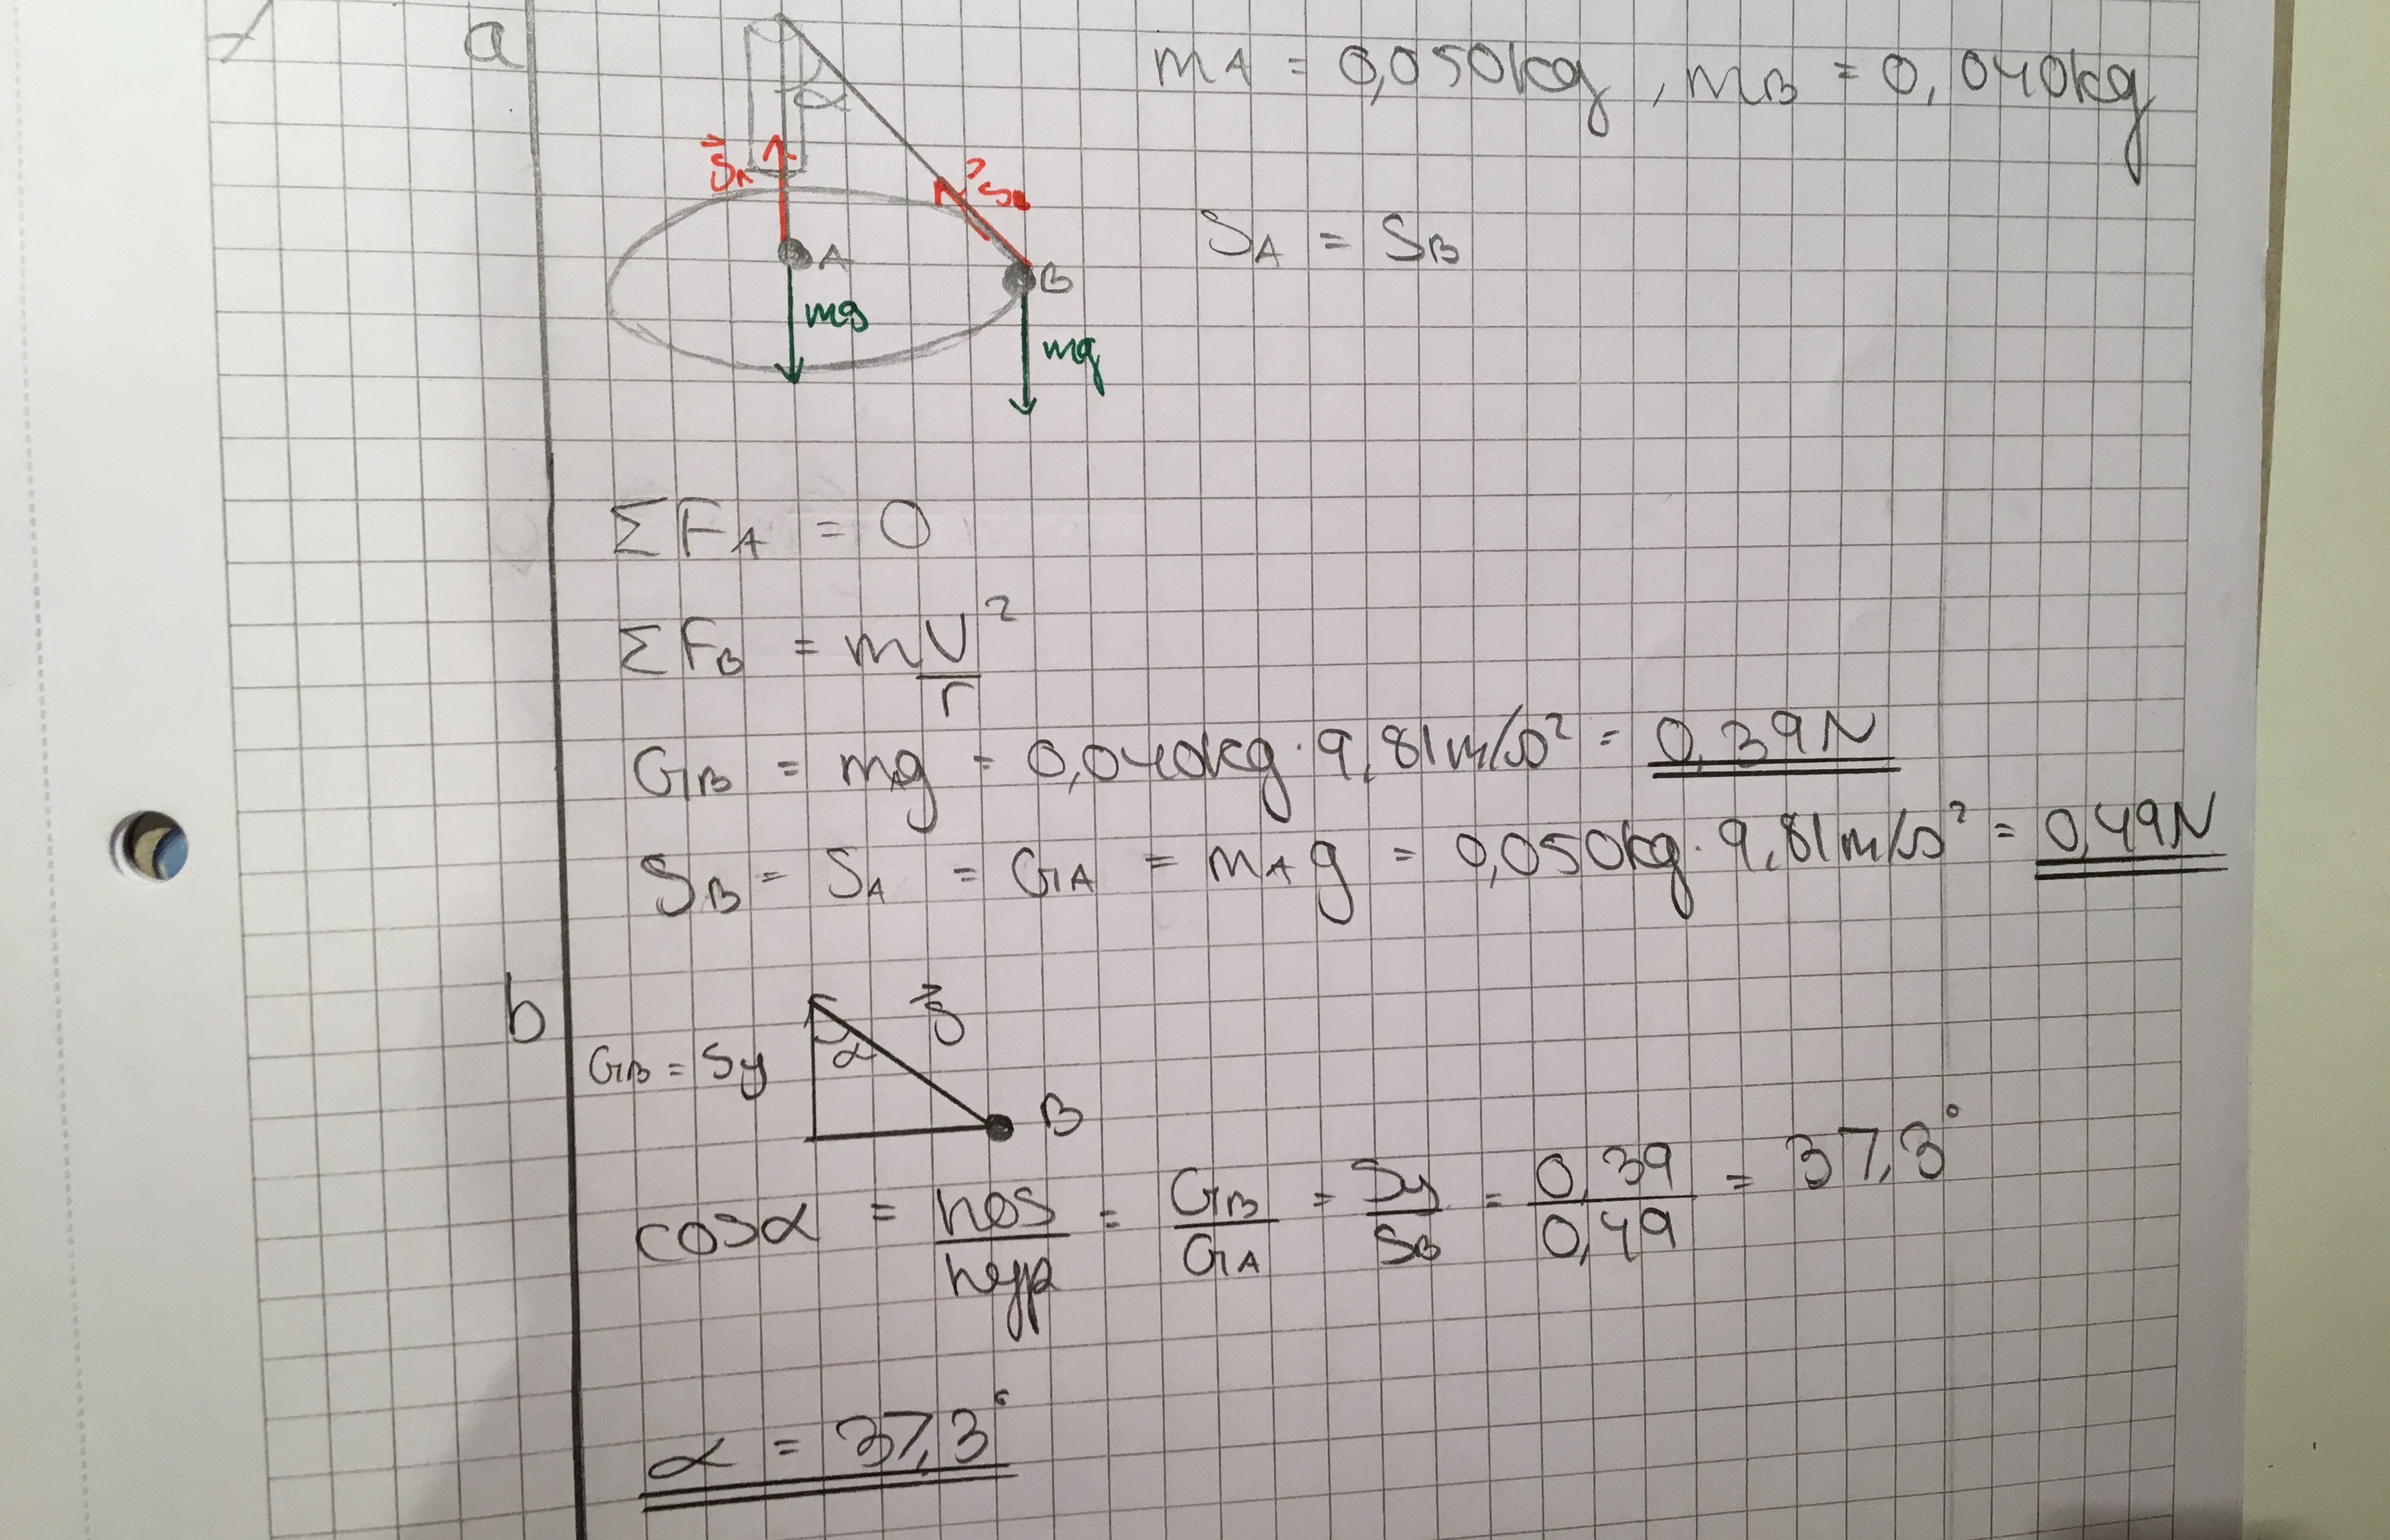 a
mA = 0,050kg, mB = 0,040kg
α
S⃗A
S⃗B
SA = SB
A
B
mg
mg
ΣFA = 0
ΣFB = m v²/r
GB = mg = 0,040kg · 9,81m/s² = 0,39N
SB = SA = GA = mAg = 0,050kg · 9,81m/s² = 0,49N
b
S⃗
α
GB = Sy
B
cosα = hos/hyp = GB/GA = Sy/SB = 0,39/0,49 = 37,3°
α = 37,3°